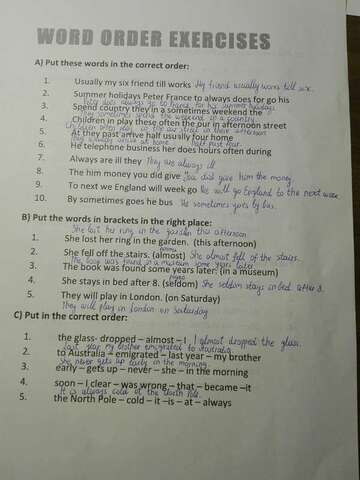 WORD ORDER EXERCISES
A) Put these words in the correct order:
1. Usually my six friend till works My friend usually works till six.
2. Summer holidays Peter France to always does for go his
Peter does always go to France for his summer holidays
3. Spend country they in a sometimes weekend the
They sometimes spend the weekend in a country
4. Children in play these often the pur in afternoon street
Children often play in the street in their afternoon
5. At they past arrive half usually four home
They usually arrive at home half past four
6. He telephone business her does hours often during
7. Always are ill they They are always ill
8. The him money you did give You did gave him the money
9. To next we England will week go We will go England to the next week
10. By sometimes goes he bus He sometimes goes by bus.
B) Put the words in brackets in the right place:
She lost her ring in the garden this afternoon
1. She lost her ring in the garden. (this afternoon)
2. She fell off the stairs. (almost) She almost fell of the stairs.
The book was found in a museum some years later
3. The book was found some years later. (in a museum)
4. She stays in bed after 8. (seldom) She seldom stays in bed after 8.
5. They will play in London. (on Saturday)
They will play in london on Saturday
C) Put in the correct order:
1. the glass- dropped – almost – I I almost dropped the glass.
Last year my brother emigrated to Australia
2. to Australia – emigrated – last year – my brother
She never gets up early in the morning
3. early – gets up – never – she – in the morning
4. soon – I clear – was wrong – that – became –it
It is always cold at the North Pole.
5. the North Pole – cold – it –is – at – always